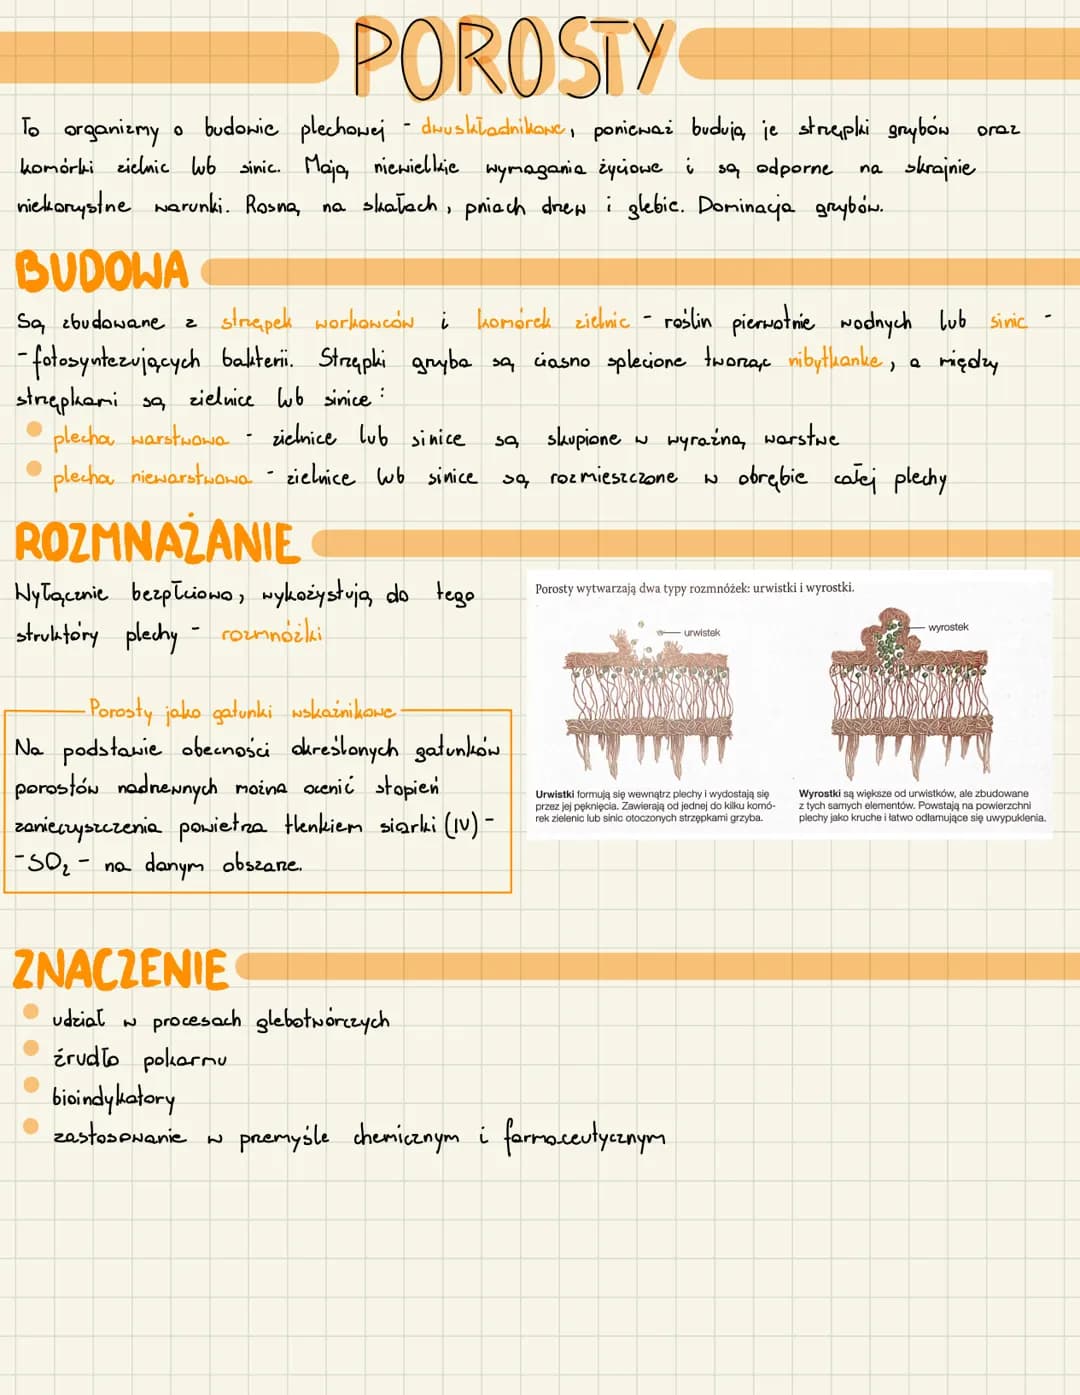 POROSTY
To organizmy o budowie plechowej - dwuskładnikowe, ponieważ budują je strzępki grzybów oraz
komórki zielnic lub sinic. Mają niewielkie wymagania życiowe i są odporne na skrajnie
niekorzystne warunki. Rosną na skałach, pniach drzew i glebie. Dominacja grzybów.
BUDOWA
Są zbudowane z strzępek workowców i komórek zielnic - roślin pierwotnie wodnych lub sinic -
- fotosyntezujących bakterii. Strzępki grzyba są ciasno splecione tworząc nibytkankę, a między
strzępkami są zielnice lub sinice:
plecha warstwowa - zielnice lub sinice są skupione w wyraźną warstwę
plecha niewarstwowa - zielnice lub sinice są rozmieszczone w obrębie całej plechy
ROZMNAŻANIE
Wyłącznie bezpłciowo, wykożystują do tego
struktóry plechy - rozmnóżki
Porosty wytwarzają dwa typy rozmnóżek: urwistki i wyrostki.
urwistek
wyrostek
Urwistki formują się wewnątrz plechy i wydostają się
przez jej pęknięcia. Zawierają od jednej do kilku komó-
rek zielenic lub sinic otoczonych strzępkami grzyba.
Wyrostki są większe od urwistków, ale zbudowane
z tych samych elementów. Powstają na powierzchni
plechy jako kruche i łatwo odłamujące się uwypuklenia.
Porosty jako gatunki wskaźnikowe
Na podstawie obecności określonych gatunków
porostów nadrewnych można ocenić stopień
zanieczyszczenia powietrza tlenkiem siarki (IV) -
- SO₂ - na danym obszarze.
ZNACZENIE
udział w procesach glebotwórczych
źrudło pokarmu
bioindykatory
zastosowanie w przemyśle chemicznym i farmaceutycznym